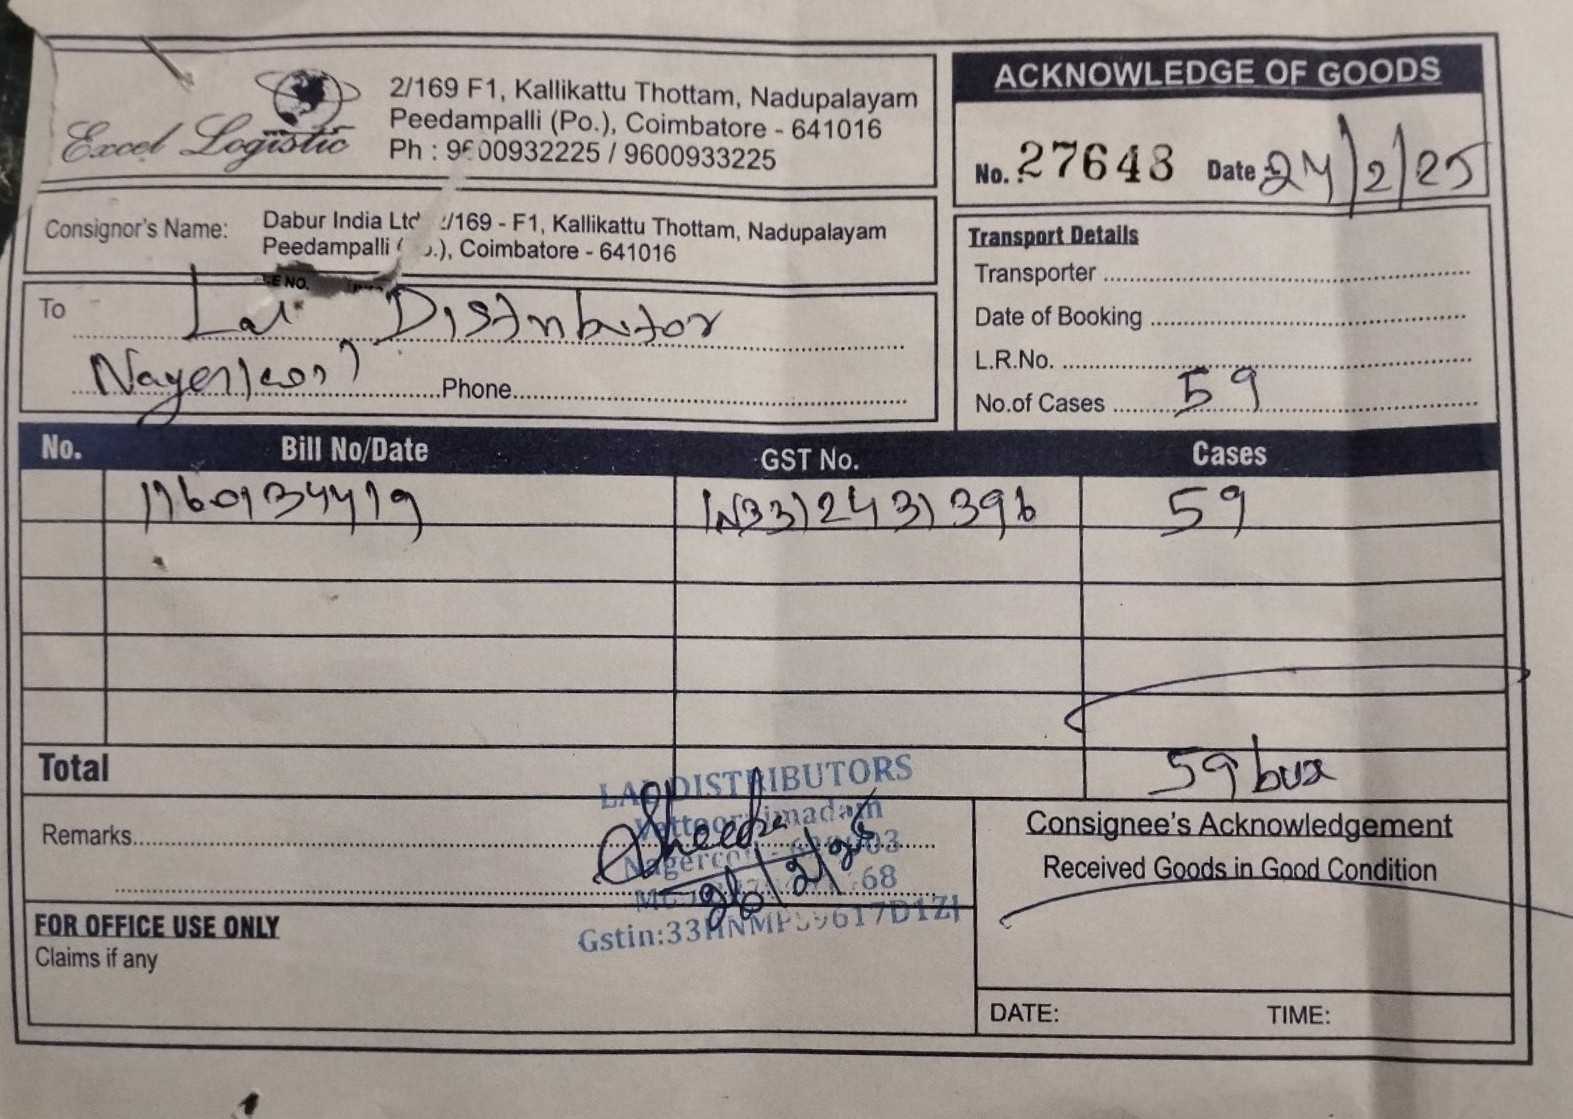 Excel Logistic
2/169 F1, Kallikattu Thottam, Nadupalayam
Peedampalli (Po.), Coimbatore - 641016
Ph : 9600932225 / 9600933225
ACKNOWLEDGE OF GOODS
No. 27648 Date 24/2/25
Consignor's Name: Dabur India Ltd /169 - F1, Kallikattu Thottam, Nadupalayam
Peedampalli ( .), Coimbatore - 641016
Transport Details
Transporter
Date of Booking
L.R.No.
No.of Cases 59
E NO.
To Lal Distributor
Phone
No. Bill No/Date GST No. Cases
1760134419 IN3312431396 59
Total 59 box
LAL DISTRIBUTORS
Remarks
FOR OFFICE USE ONLY
Claims if any
26/2/25
Consignee's Acknowledgement
Received Goods in Good Condition
DATE: TIME: